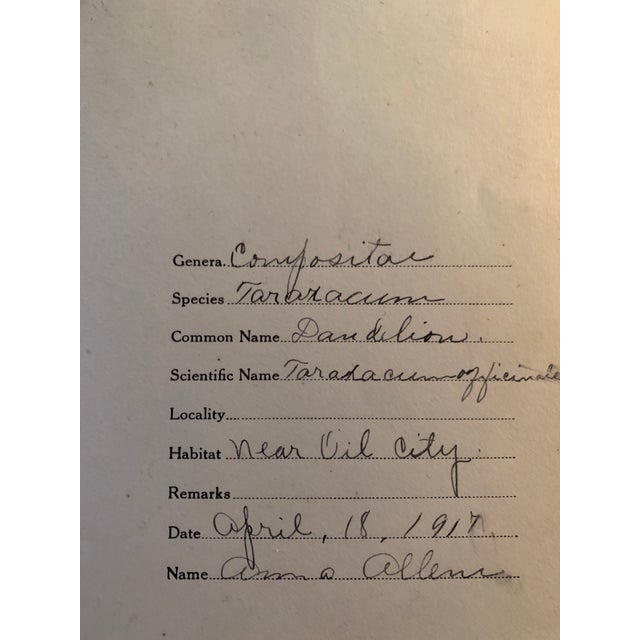 Genera. Compositae
Species Taraxacum
Common Name Dandelion.
Scientific Name Taraxacum officinale
Locality
Habitat Near Oil City.
Remarks
Date April, 18, 1917.
Name Anna Allen